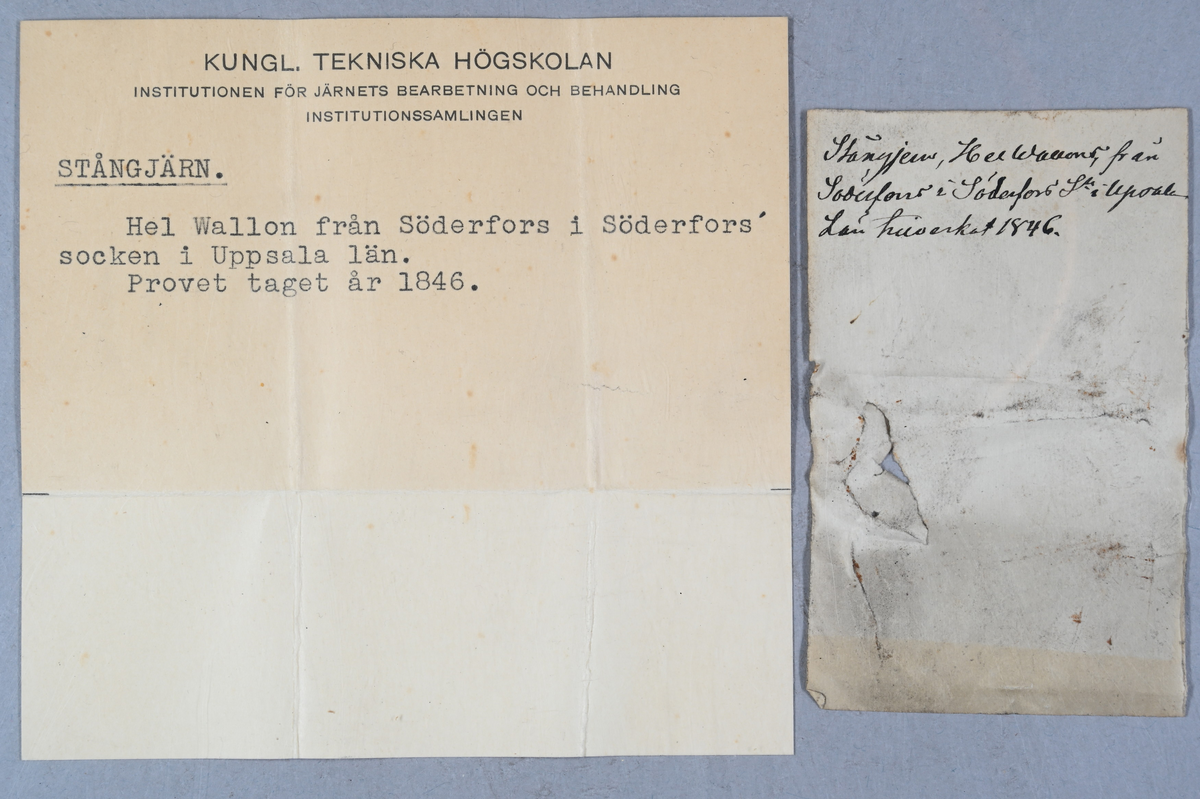 KUNGL. TEKNISKA HÖGSKOLAN
INSTITUTIONEN FÖR JÄRNETS BEARBETNING OCH BEHANDLING
INSTITUTIONSSAMLINGEN
STÅNGJÄRN.
Hel Wallon från Söderfors i Söderfors'
socken i Uppsala län.
Provet taget år 1846.
Stångjern, Hel Wallons, från
Söderfors i Söderfors Sn i Upsala
Län tillverkat 1846.